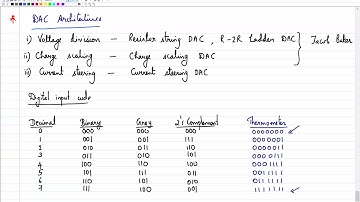 DAC Architectures
i) Voltage division – Resistor string DAC, R-2R Ladder DAC
ii) Charge scaling – Charge scaling DAC
iii) Current steering – Current steering DAC
Jacob Baker
Digital input code
Decimal Binary Gray 2's Complement Thermometer
0 000 000 000 0000000
1 001 001 111 0000001
2 010 011 110 0000011
3 011 010 101 0000111
4 100 110 100 0001111
5 101 111 011 0011111
6 110 101 010 0111111
7 111 100 001 1111111